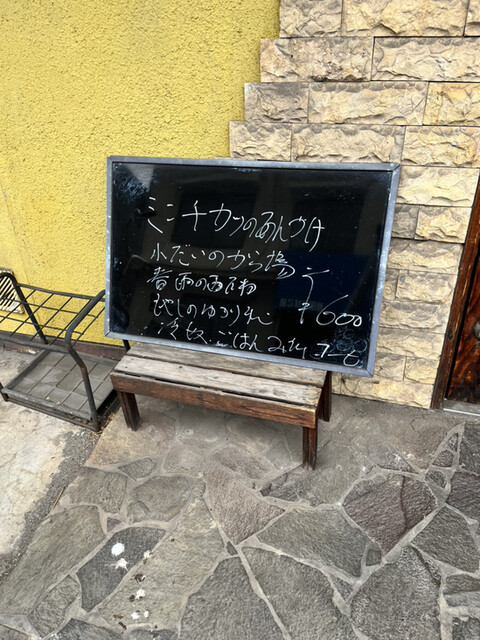 ミンチカツのあんかけ
小だいのから揚げ
春雨の酢の物 ¥600
もやしのゆかり和え
冷奴 ごはん みそ汁 コーヒー